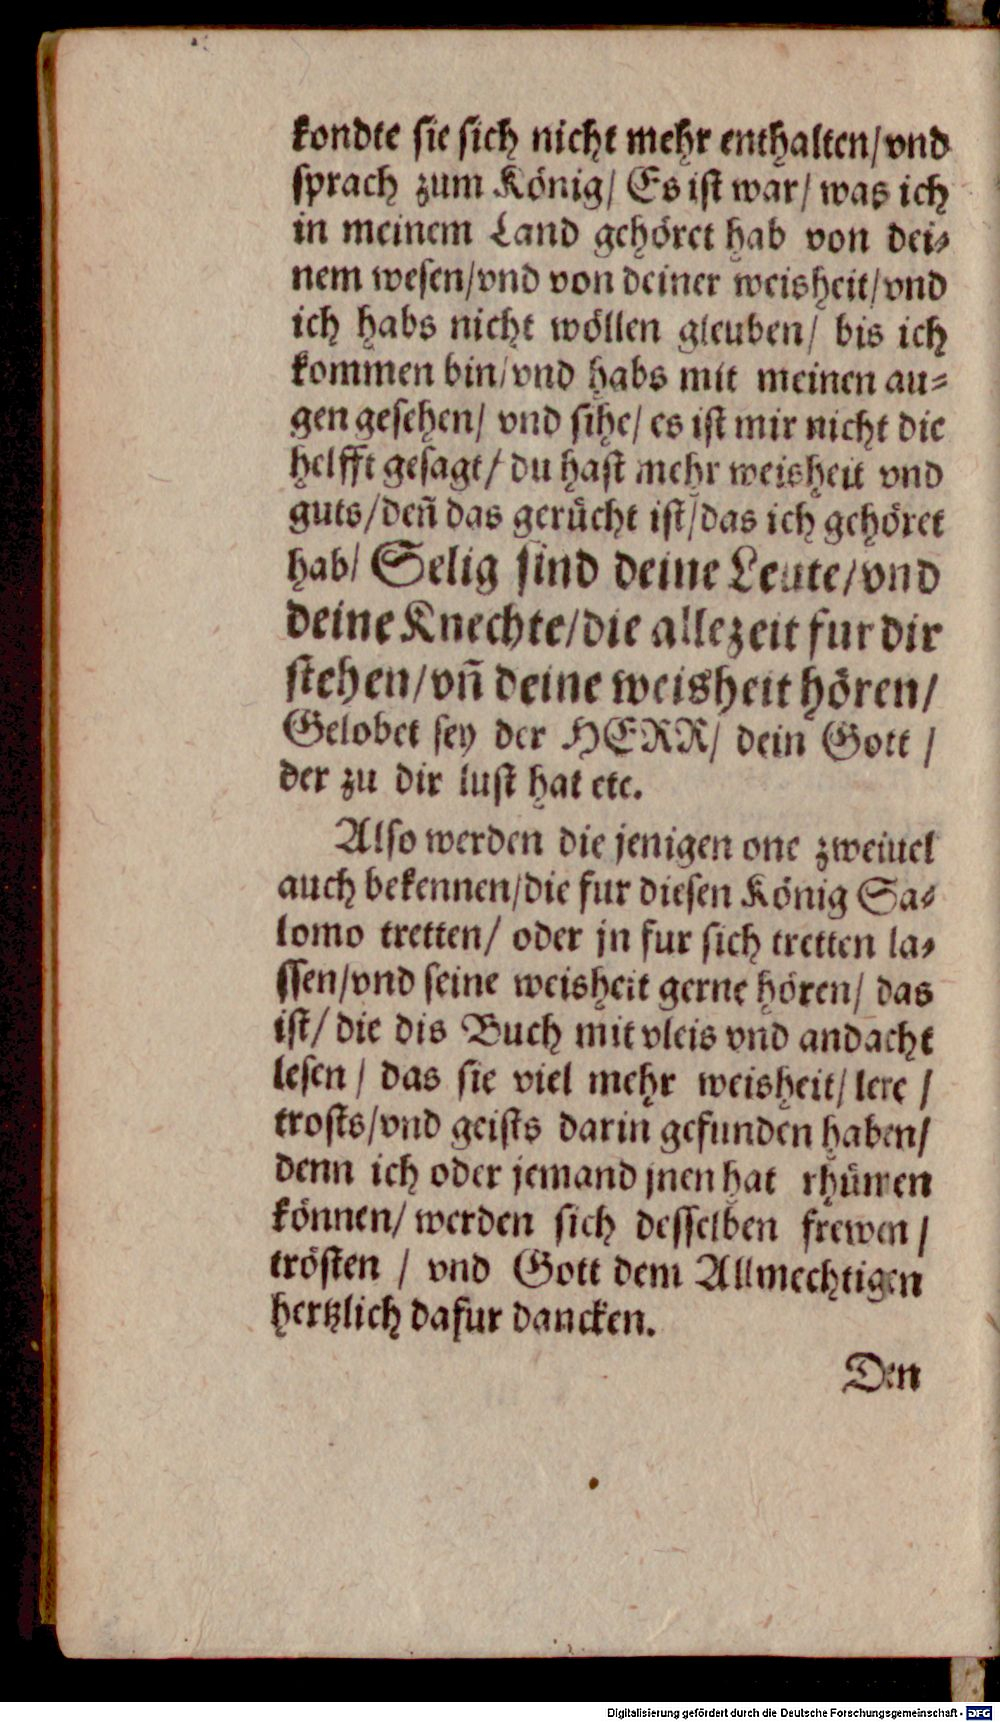 kondte sie sich nicht mehr enthalten/vnd
sprach zum König/ Es ist war/ was ich
in meinem Land gehöret hab von dei-
nem wesen/vnd von deiner weisheit/vnd
ich habs nicht wöllen gleuben/ bis ich
kommen bin/vnd habs mit meinen au-
gen gesehen/ vnd sihe/ es ist mir nicht die
helfft gesagt/ du hast mehr weisheit vnd
guts/den̄ das gerücht ist/das ich gehöret
hab/ Selig sind deine Leute/vnd
deine Knechte/die allezeit fur dir
stehen/vn̄ deine weisheit hören/
Gelobet sey der HERR/ dein Gott /
der zu dir lust hat etc.
Also werden die jenigen one zweiuel
auch bekennen/die fur diesen König Sa-
lomo tretten/ oder jn fur sich tretten la-
ssen/vnd seine weisheit gerne hören/ das
ist/ die dis Buch mit vleis vnd andacht
lesen / das sie viel mehr weisheit/ lere /
trosts/vnd geists darin gefunden haben/
denn ich oder jemand jnen hat rhümen
können/ werden sich desselben frewen /
trösten / vnd Gott dem Allmechtigen
hertzlich dafur dancken.
Den
Digitalisierung gefördert durch die Deutsche Forschungsgemeinschaft - DFG